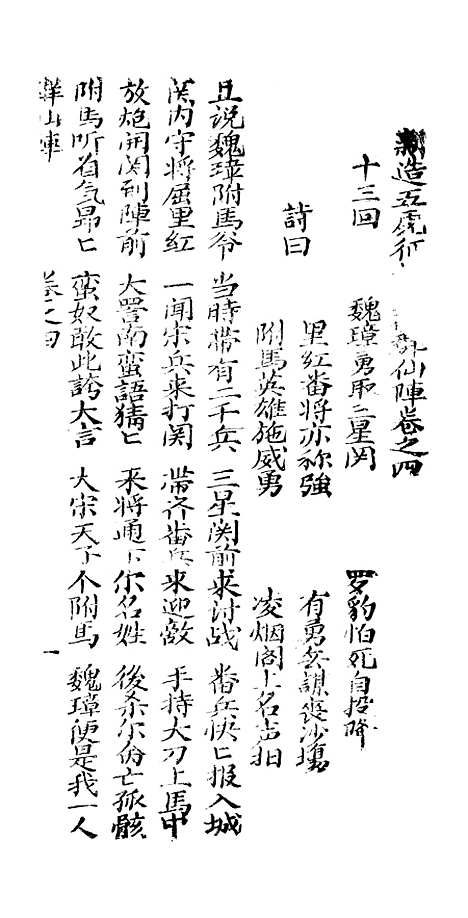 新造五虎征 群仙陣卷之四
十三回 魏璋勇取三星関 罗豹怕死自投降
詩曰 里红番将亦称強 有勇無謀喪沙塲
附馬英雄施威勇 凌烟阁上名声扫
且说魏璋附馬爷 当時帶有二千兵 三星関前求討战 番兵快匕报入城
関内守将屈里红 一聞宋兵来打関 帶齐番兵来迎敌 手持大刀上馬中
放炮開関到陣前 大罵南蛮語猜匕 来将通下尔名姓 後来尔身亡孤骸
附馬听省气昂匕 蛮奴敢此誇大言 大宋天子个附馬 魏璋便是我一人
群山陣 卷之四 一